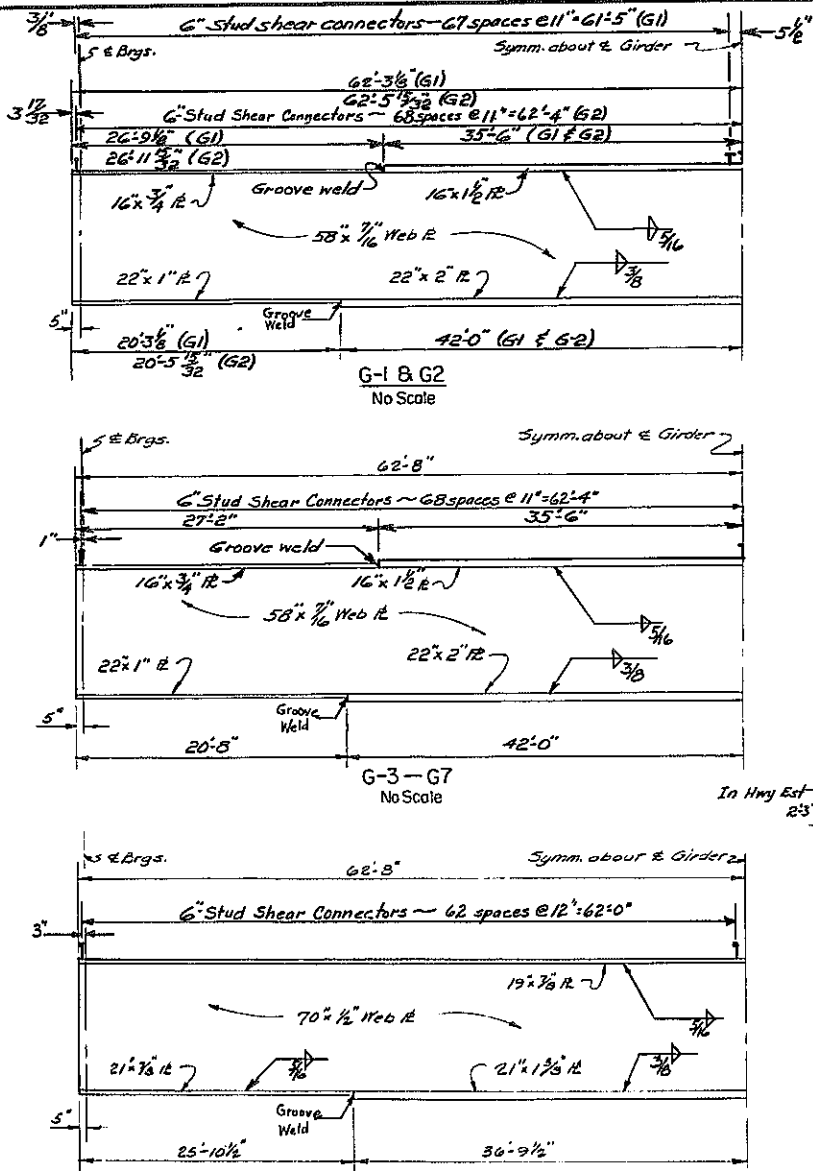 3/8"
6" Stud shear connectors - 67 spaces @ 11" = 61'-5" (G1)
5 1/2"
S ℄ Brgs.
Symm. about ℄ Girder
62'-3 1/8" (G1)
62'-5 15/32" (G2)
3 17/32
6" Stud Shear Connectors ~ 68 spaces @ 11" = 62'-4" (G2)
26'-9 1/8" (G1)
35'-6" (G1 & G2)
26'-11 15/32" (G2)
Groove weld
16" x 3/4" ℞
16" x 1 1/2" ℞
58" x 7/16" Web ℞
5/16
3/8
22" x 1" ℞
22" x 2" ℞
5"
Groove
Weld
20'-3 1/8" (G1)
42'-0" (G1 & G-2)
20'-5 15/32" (G2)
G-1 & G2
No Scale
S ℄ Brgs.
Symm. about ℄ Girder
62'-8"
6" Stud Shear Connectors ~ 68 spaces @ 11" = 62'-4"
27'-2"
35'-6"
1"
Groove weld
16" x 3/4" ℞
16" x 1 1/2" ℞
58" x 7/16" Web ℞
5/16
3/8
22" x 1" ℞
22" x 2" ℞
5"
Groove
Weld
20'-8"
42'-0"
G-3 — G7
No Scale
In Hwy Est
2'3
S ℄ Brgs.
Symm. about ℄ Girder
62'-8"
6" Stud Shear Connectors ~ 62 spaces @ 12" = 62'-0"
3"
19" x 7/8" ℞
70" x 1/2" Web ℞
5/16
5/16
3/8
21" x 7/8" ℞
21" x 1 3/8" ℞
5"
Groove
Weld
25'-10 1/2"
36'-9 1/2"